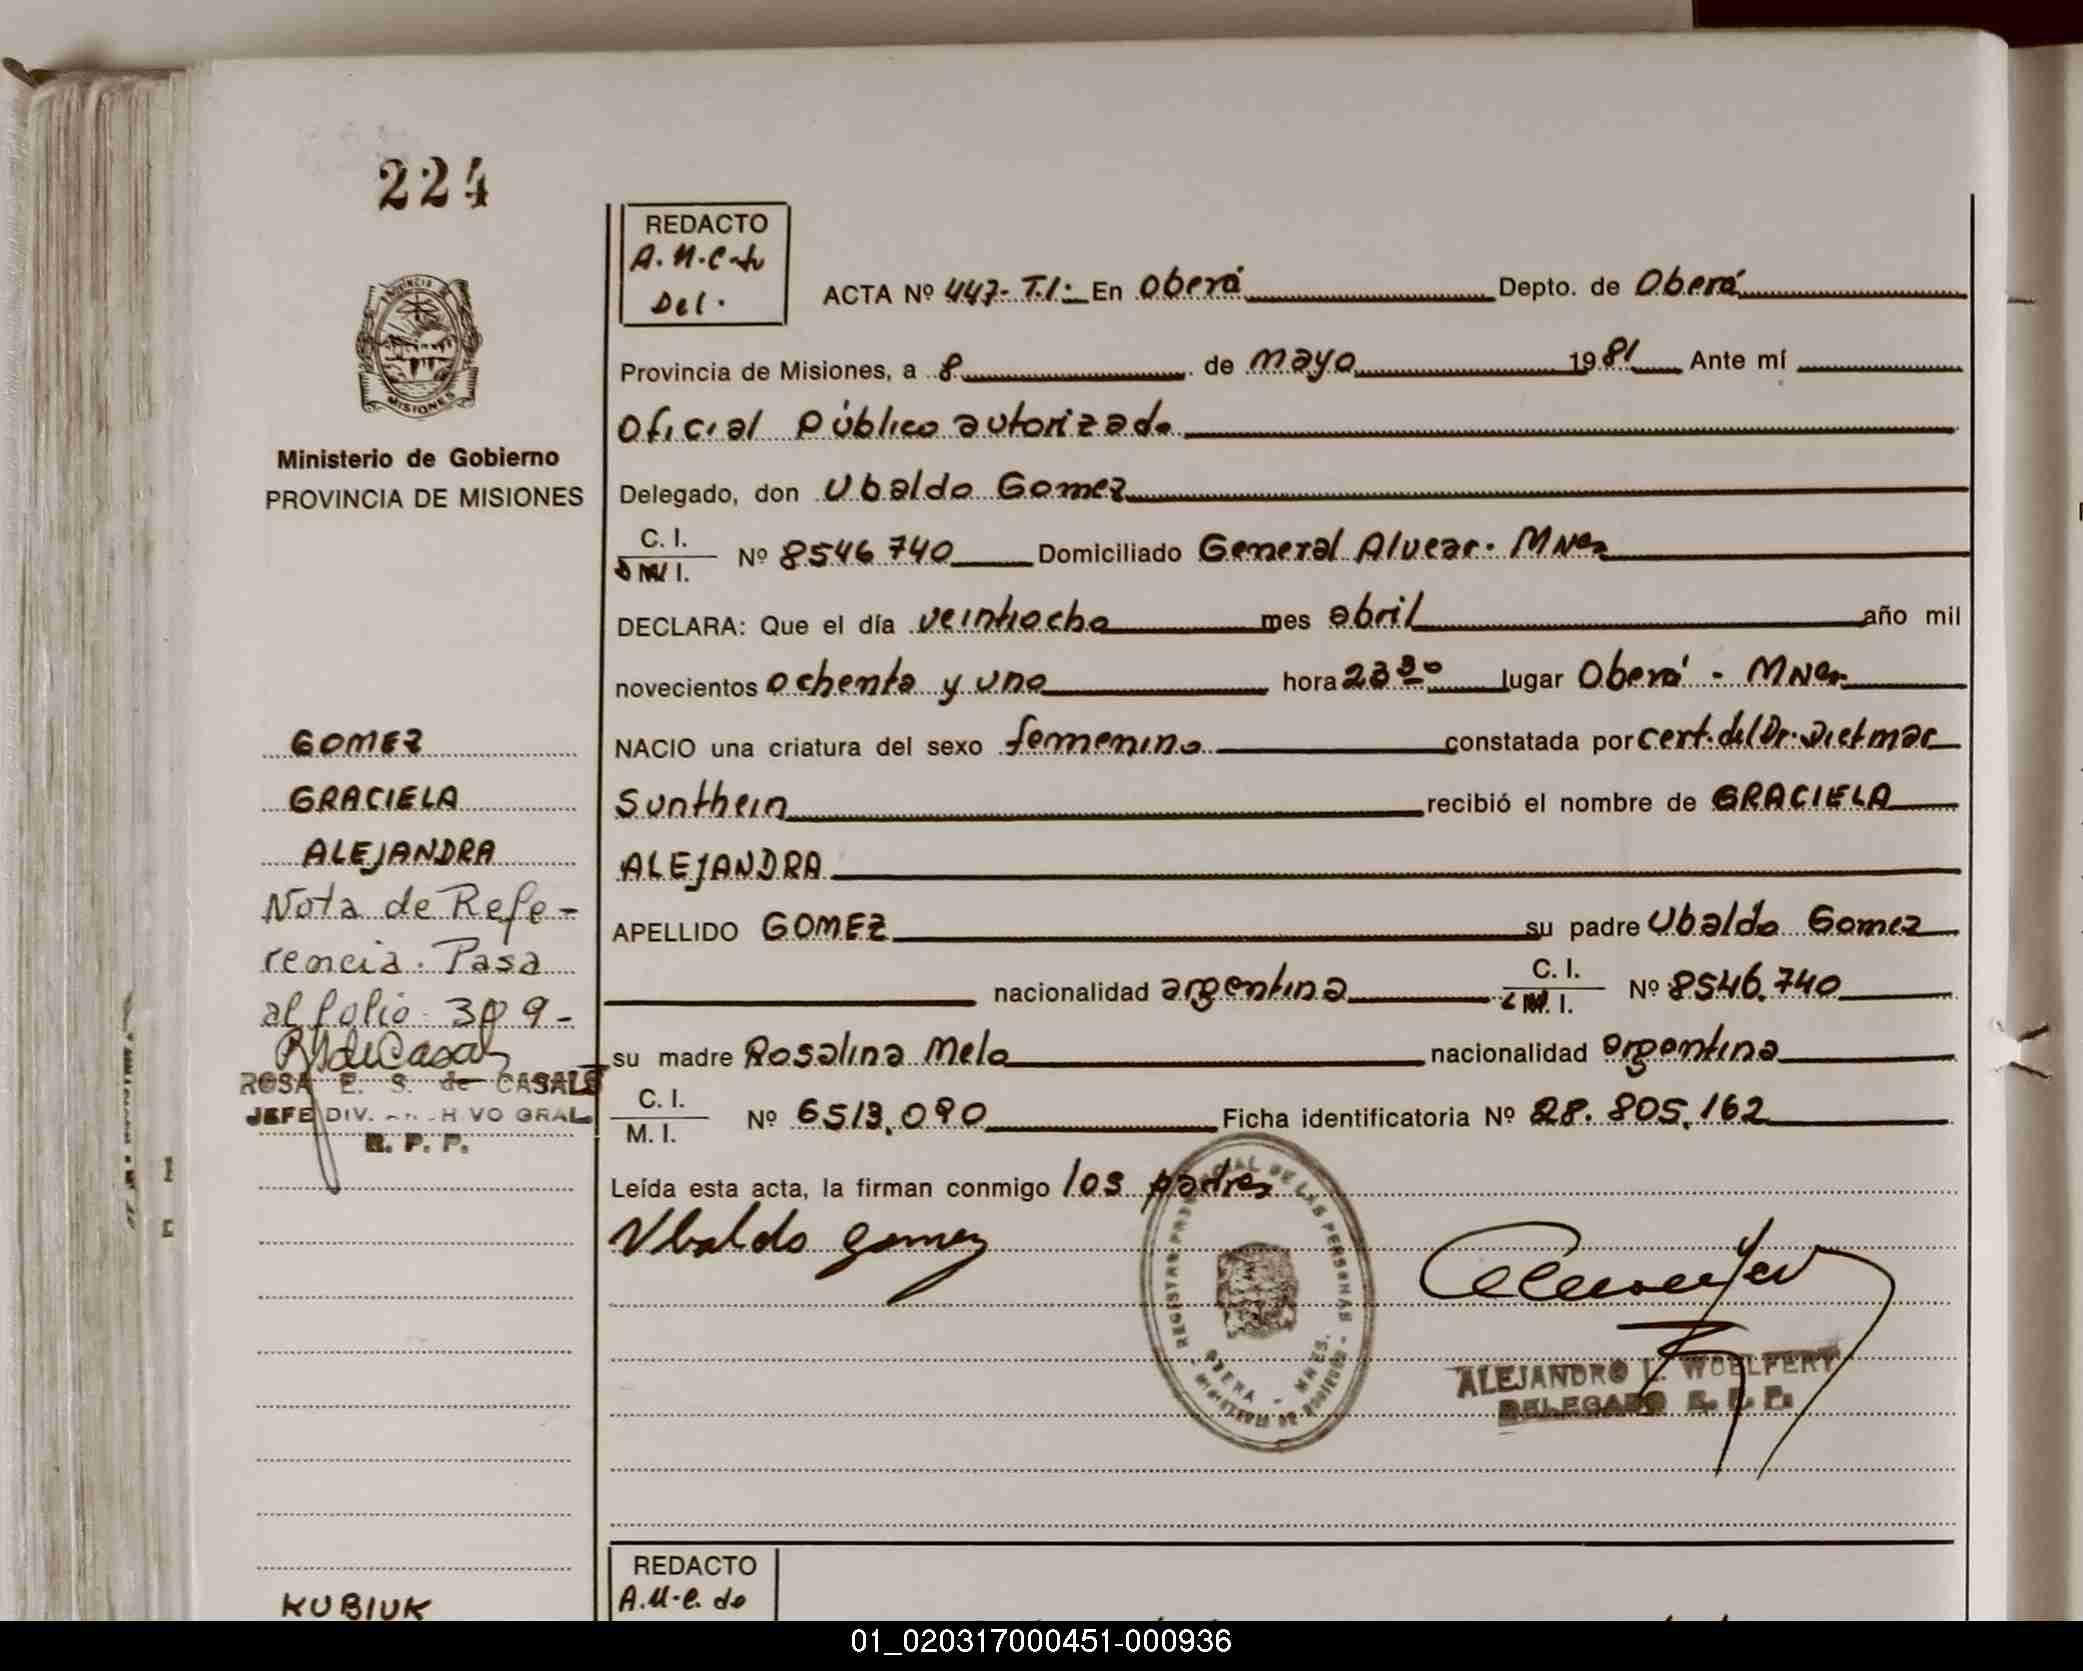 224
REDACTO
Del.
ACTA Nº 447- T.I: En Oberá Depto. de Oberá
Provincia de Misiones, a 8 de mayo 1981 Ante mí
Oficial Público autorizado
Ministerio de Gobierno
PROVINCIA DE MISIONES
Delegado, don Ubaldo Gomez
C. I.
M. I.
Nº 8546740 Domiciliado General Alvear. Mnes
DECLARA: Que el día veintiocho mes abril año mil
novecientos ochenta y uno hora 23 30 lugar Oberá - Mnes
NACIO una criatura del sexo femenino constatada por cert. del Dr. Dietmar
Sunthein recibió el nombre de GRACIELA
ALEJANDRA
APELLIDO GOMEZ su padre Ubaldo Gomez
nacionalidad argentina C. I. M. I. Nº 8546.740
su madre Rosalina Melo nacionalidad argentina
C. I.
M. I.
Nº 6513.090 Ficha identificatoria Nº 28.805.162
Leída esta acta, la firman conmigo los padres
Ubaldo gomez
GOMEZ
GRACIELA
ALEJANDRA
Nota de Refe-
rencia. Pasa
al folio 309-
ROSA E. S. de CASALS
JEFE DIV. GRAL.
R. P. P.
OBERA - MNES.
ALEJANDRO L. WOELFERT
DELEGADO R. P. P.
REDACTO
KUBIUK
01_020317000451-000936